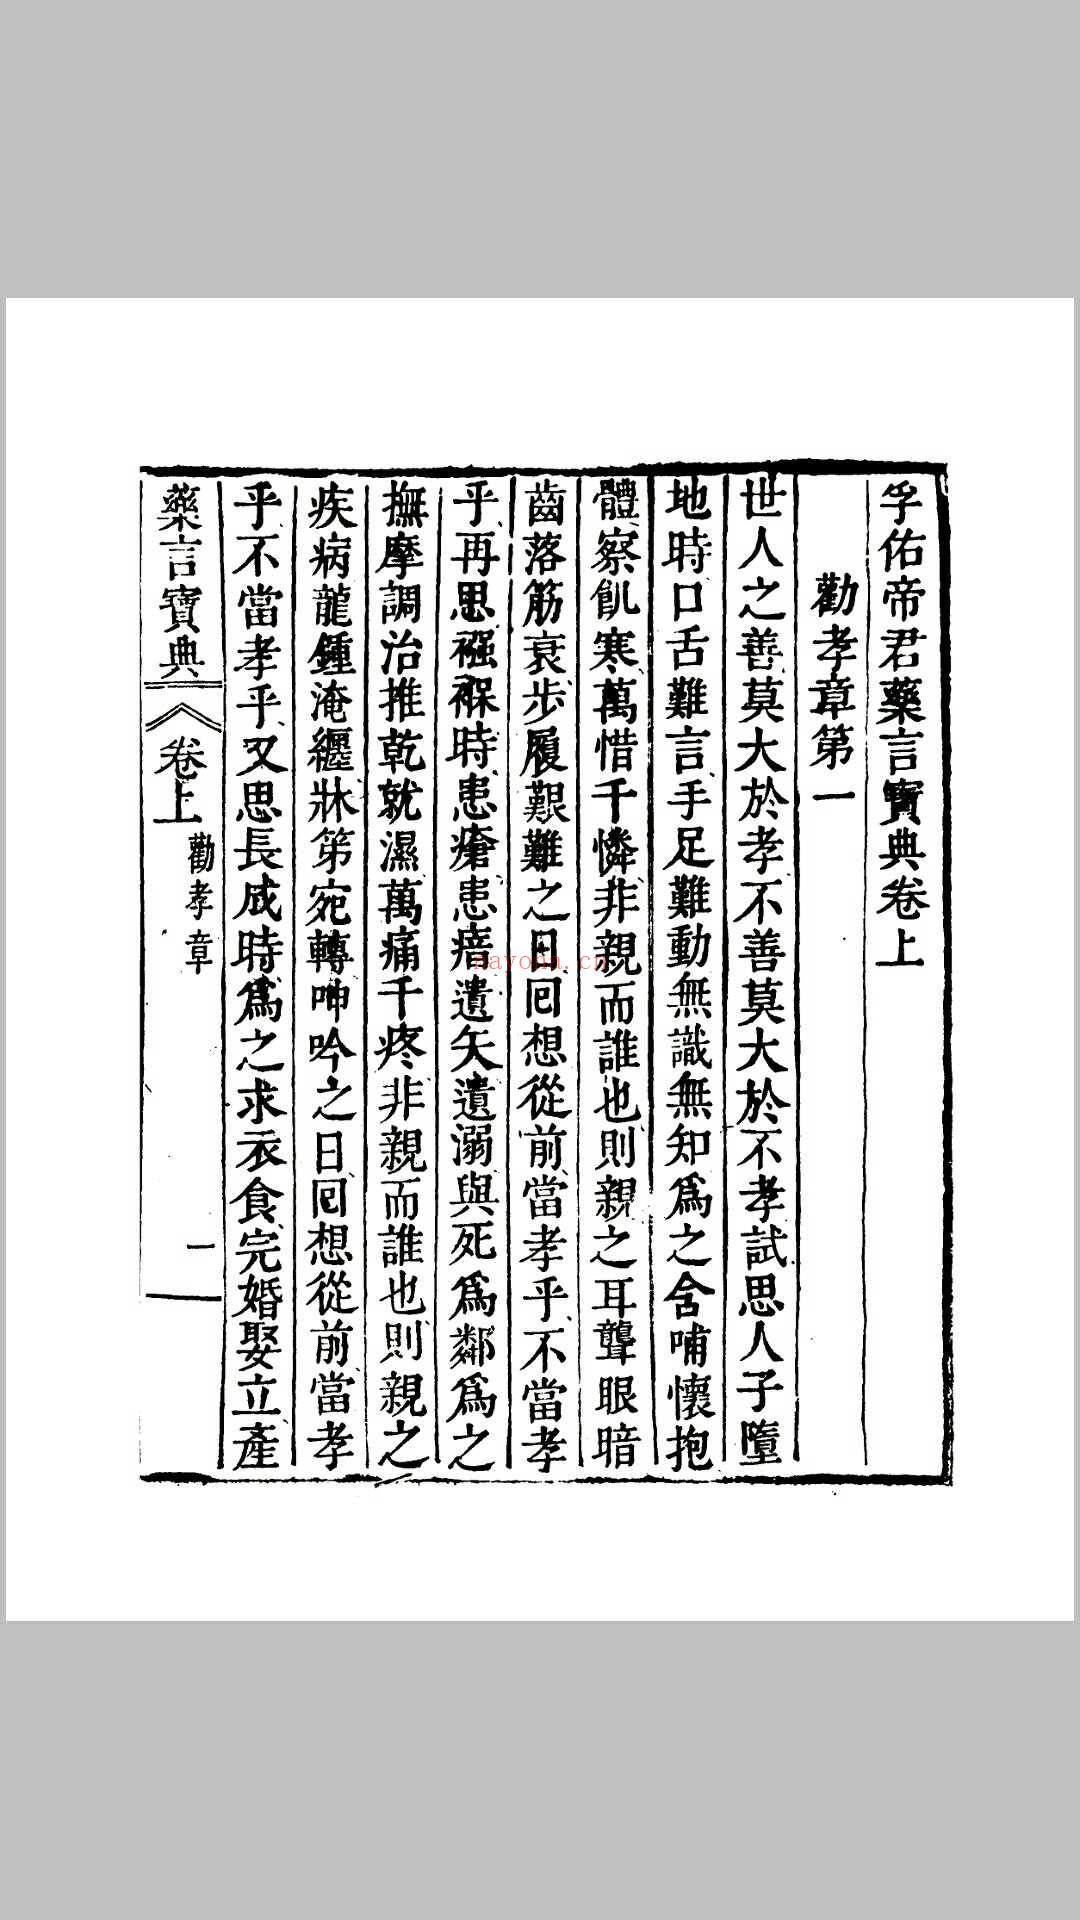 孚佑帝君藥言寶典卷上
勸孝章第一
世人之善莫大於孝不善莫大於不孝試思人子墮
地時口舌難言手足難動無識無知爲之含哺懷抱
體察飢寒萬惜千憐非親而誰也則親之耳聾眼暗
齒落筋衰步履艱難之日回想從前當孝乎不當孝
乎再思襁褓時患瘡患瘄遺矢遺溺與死爲鄰爲之
撫摩調治推乾就濕萬痛千疼非親而誰也則親之
疾病龍鍾淹纏牀笫宛轉呻吟之日回想從前當孝
乎不當孝乎又思長成時爲之求衣食完婚娶立產
藥言寶典
卷上
勸孝章
一
nayona.cn